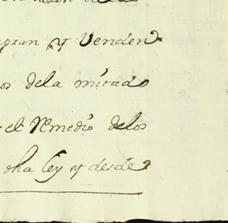 pran y Venden
os dela mitad
el Remedio delos
dha ley y desde